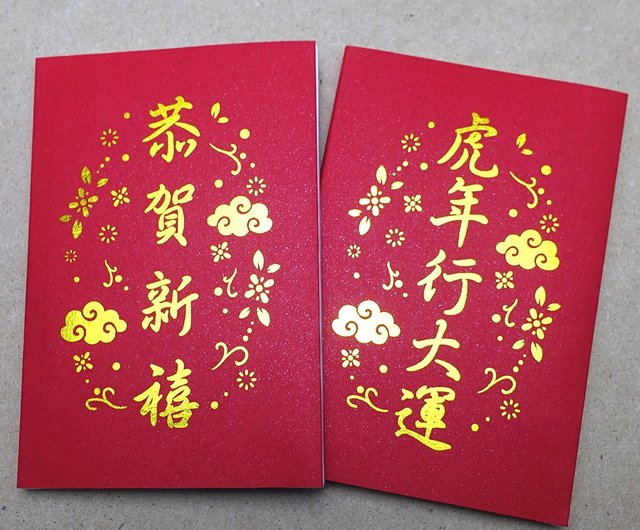 恭賀新禧
虎年行大運